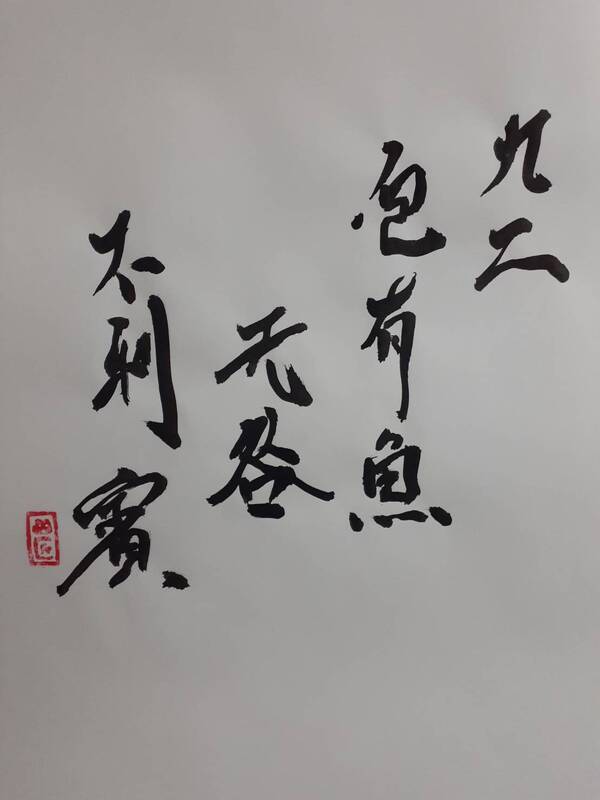 九二
包有魚
无咎
不利賓